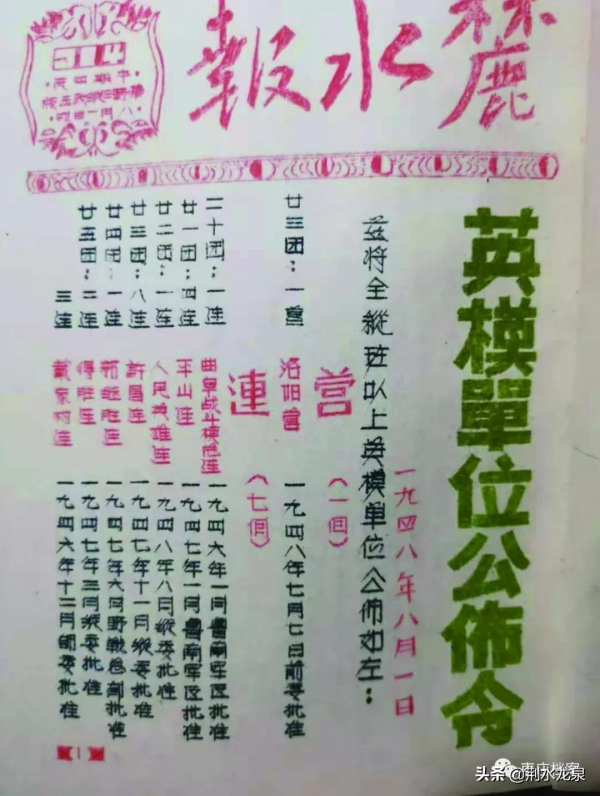 麓水報
英模單位公佈令
一九四八年八月一日
茲將全縱班以上英模單位公佈如左：
營（一個）
廿三团：一營 洛阳營 一九四八年七月七日前委批准
連（七個）
二十团：一连 曲阜战斗模范连 一九四六年一月魯南軍区批准
廿一团：四连 平山连 一九四七年一月魯南軍区批准
廿二团：一连 人民英雄连 一九四八年八月縱委批准
廿三团：八连 許昌连 一九四七年十一月縱委批准
廿四团：一连 一九四七年六月野戰总部批准
廿五团：二连 得胜连 一九四七年三月縱委批准
三连 戴家村连 一九四六年十二月師委批准
1
枣庄档案
头条 @荆水龙泉